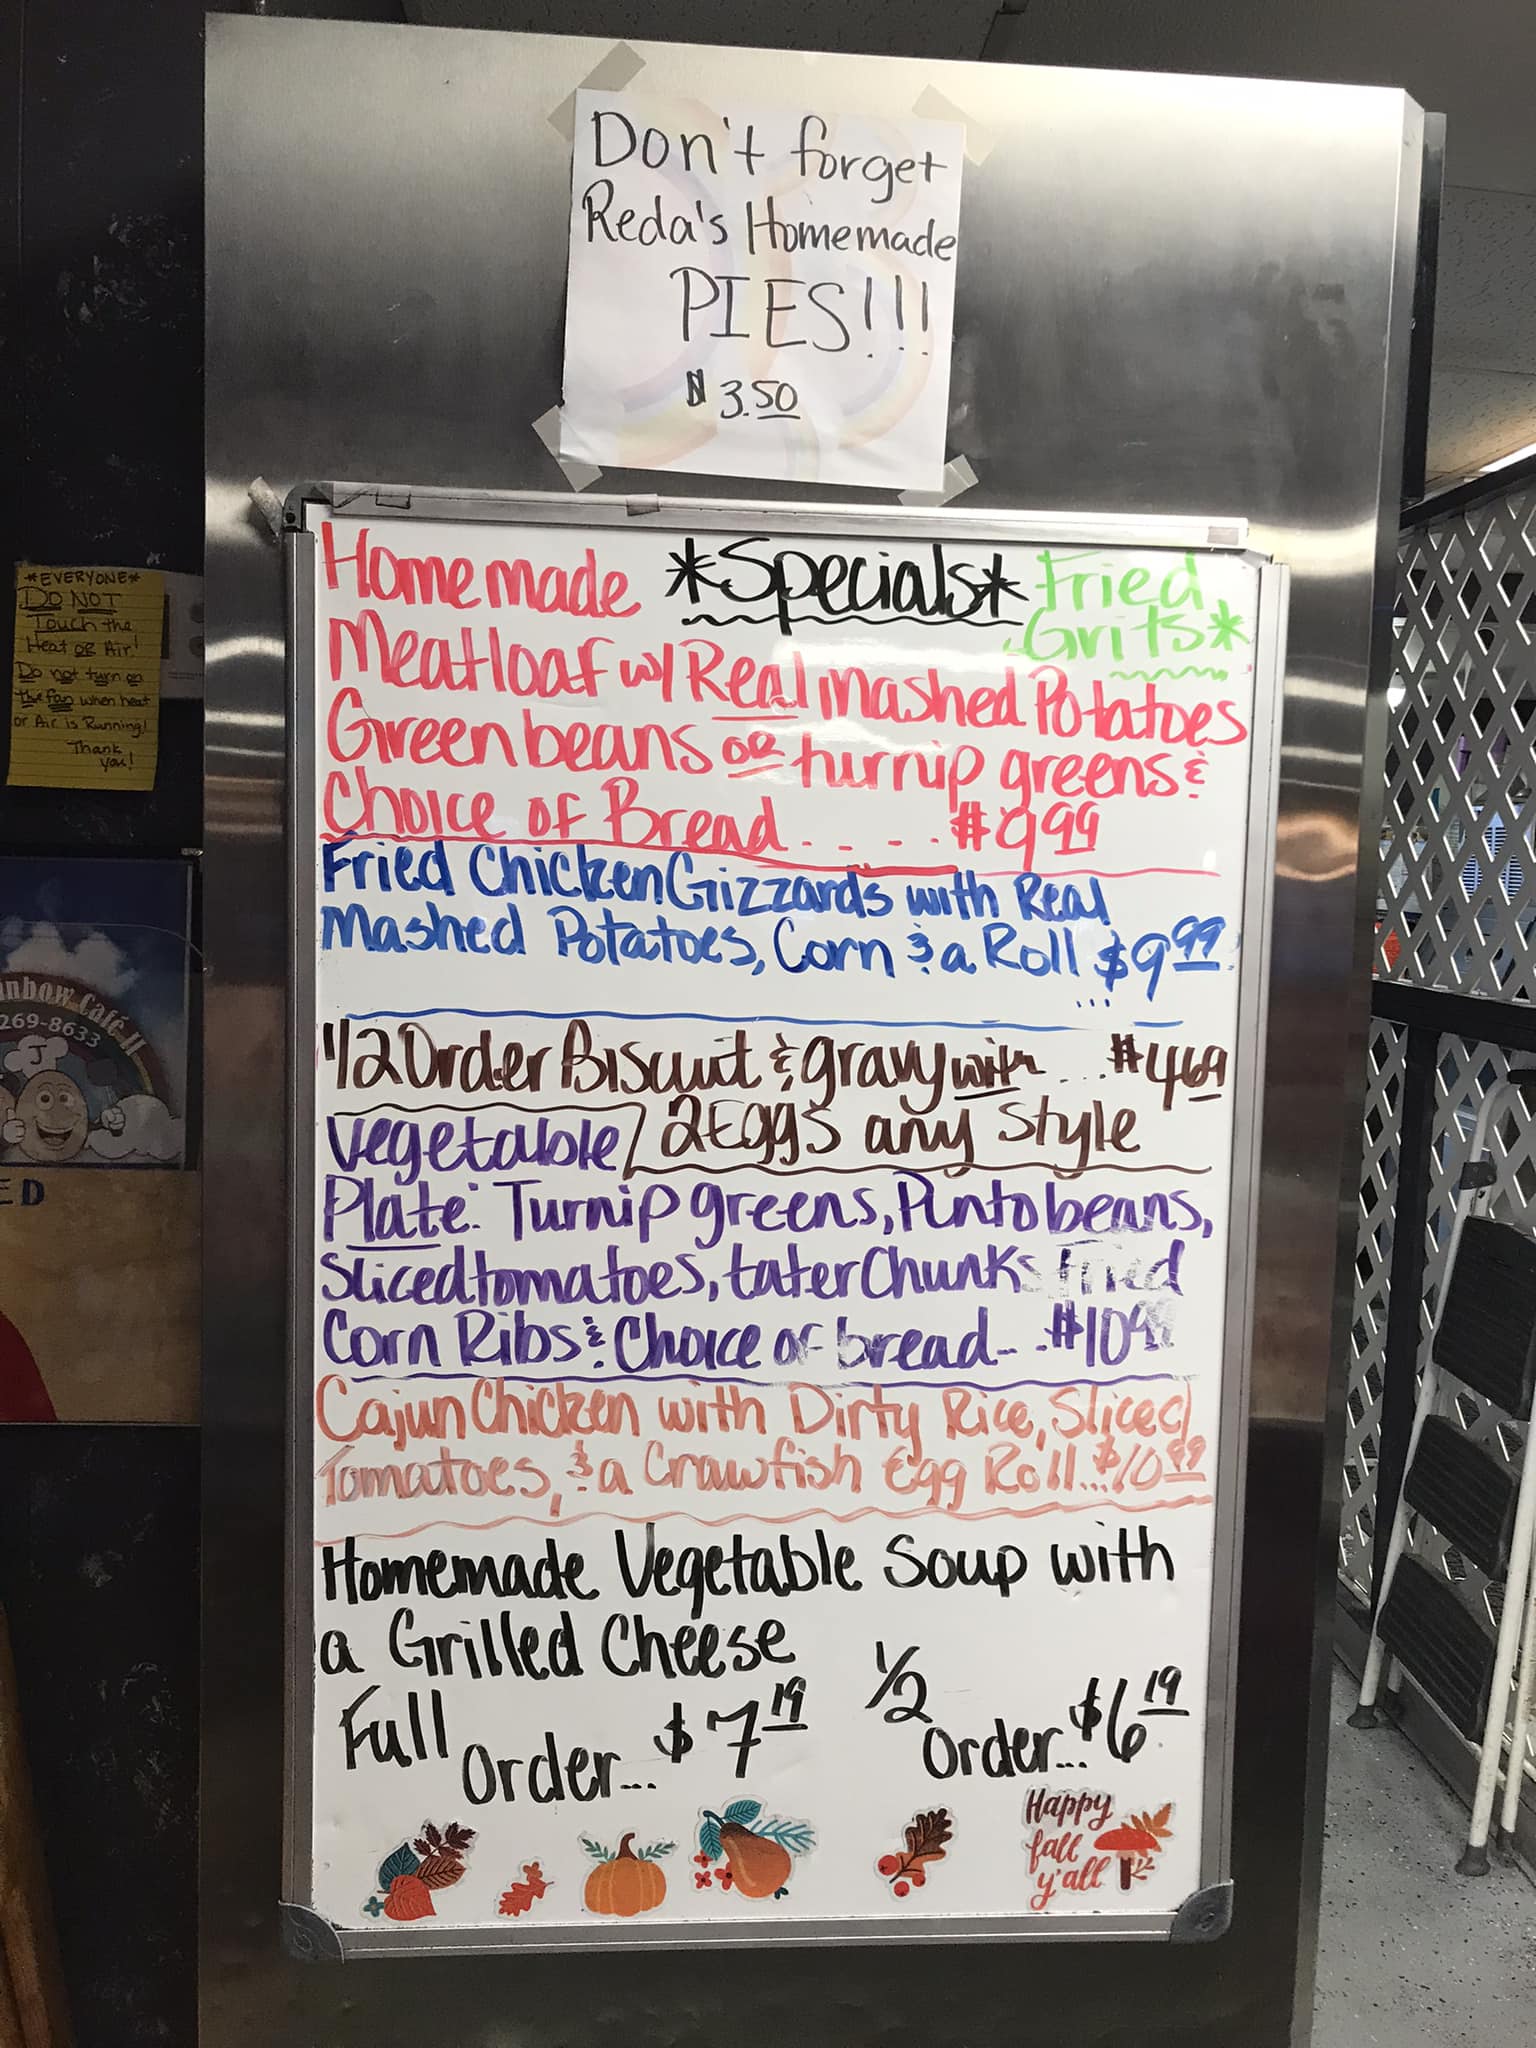 Don't forget
Reda's Homemade
PIES!!!
$3.50
*EVERYONE*
DO NOT
Touch the
Heat or Air!
Do not turn on
the fan when heat
or Air is Running!
Thank
you!
nbow Café II
269-8633
J
ED
*Specials*
Fried
Grits*
Homemade
Meatloaf w/ Real mashed Potatoes
Green beans or turnip greens &
Choice of Bread..... $9.99
Fried Chicken Gizzards with Real
Mashed Potatoes, Corn & a Roll $9.99
...
1/2 Order Biscuit & gravy with ... $4.69
2 Eggs any Style
Vegetable
Plate: Turnip greens, Pinto beans,
Sliced tomatoes, tater Chunks Fried
Corn Ribs & Choice of bread... $10.99
Cajun Chicken with Dirty Rice, Sliced
Tomatoes, & a Crawfish Egg Roll...$10.99
Homemade Vegetable Soup with
a Grilled Cheese
Full Order... $7.19
1/2 Order... $6.19
Happy
fall
y'all